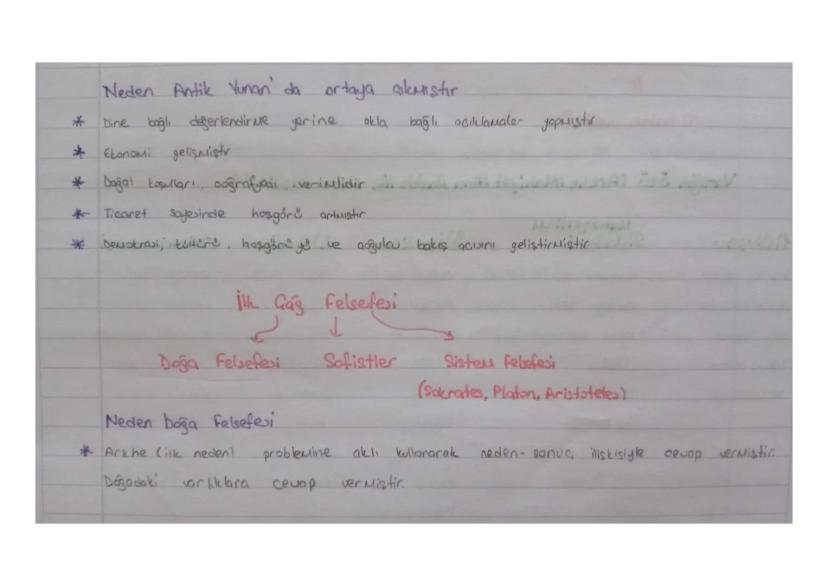 Neden Antik Yunan'da ortaya çıkmıştır
* Dine bağlı değerlendirme yerine akla bağlı açıklamalar yapmıştır
* Ekonomi gelişmiştir
* Doğal koşulları, coğrafyası verimlidir
* Ticaret sayesinde hoşgörü artmıştır
* Demokrasi, kültürü, hoşgörüyü ve çoğulcu bakış açısını geliştirmiştir
İlk Çağ Felsefesi
Doğa Felsefesi Sofistler Sistem Felsefesi
(Sokrates, Platon, Aristoteles)
Neden Doğa Felsefesi
* Arkhe (ilk neden) problemine aklı kullanarak neden-sonuç ilişkisiyle cevap vermiştir.
Doğadaki varlıklara cevap vermiştir.